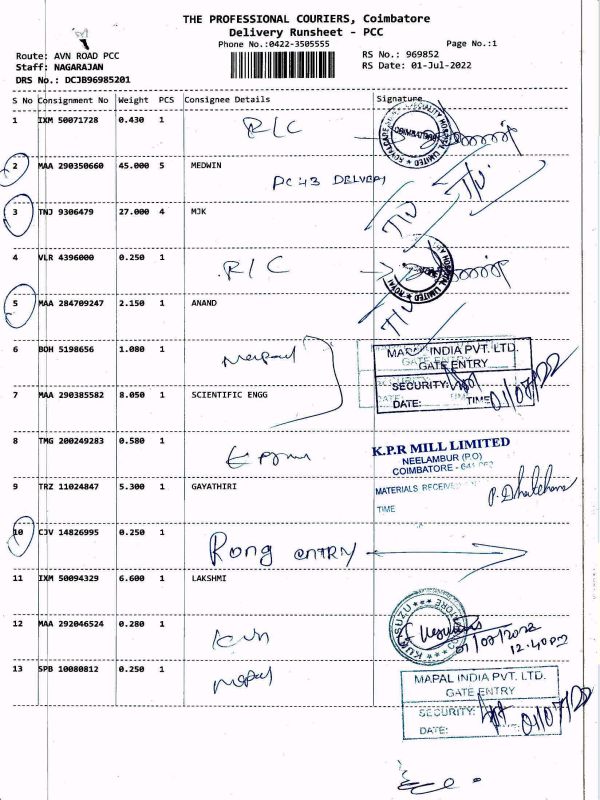 THE PROFESSIONAL COURIERS, Coimbatore
Delivery Runsheet - PCC
Phone No.:0422-3505555
Page No.:1
Route: AVN ROAD PCC
RS No.: 969852
Staff: NAGARAJAN
RS Date: 01-Jul-2022
DRS No.: DCJB96985201
S No Consignment No Weight PCS Consignee Details Signature
1 IXM 50071728 0.430 1 R/C
COIMBATORE
2 MAA 290350660 45.000 5 MEDWIN
DELVERY
T/U
3 TNJ 9306479 27.000 4 MJK
T/U
4 VLR 4396000 0.250 1 R/C
5 MAA 284709247 2.150 1 ANAND
T/U
6 BOH 5198656 1.080 1 Mapal
MAPAL INDIA PVT. LTD.
GATE ENTRY
7 MAA 290385582 8.050 1 SCIENTIFIC ENGG
SECURITY:
DATE: TIME 01/07/22
8 TMG 200249283 0.580 1
K.P.R MILL LIMITED
NEELAMBUR (P.O)
COIMBATORE -
9 TRZ 11024847 5.300 1 GAYATHIRI
MATERIALS RECEIVED
TIME
10 CJV 14826995 0.250 1 Rong ENTRY
11 IXM 50094329 6.600 1 LAKSHMI
12 MAA 292046524 0.280 1
01/07/2022
12.40pm
13 SPB 10080812 0.250 1 Mapal
MAPAL INDIA PVT. LTD.
GATE ENTRY
SECURITY:
DATE: 01/07/22